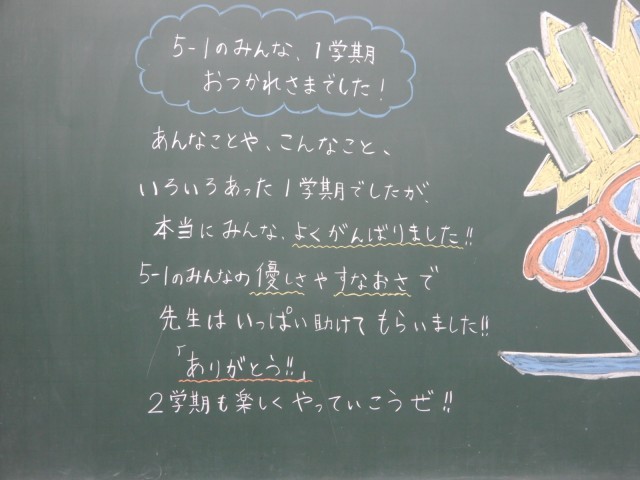 5-1のみんな、1学期
おつかれさまでした！
あんなことや、こんなこと、
いろいろあった1学期でしたが、
本当にみんな、よくがんばりました!!
5-1のみんなの優しさやすなおさで
先生はいっぱい助けてもらいました!!
「ありがとう!!」
2学期も楽しくやっていこうぜ!!
H